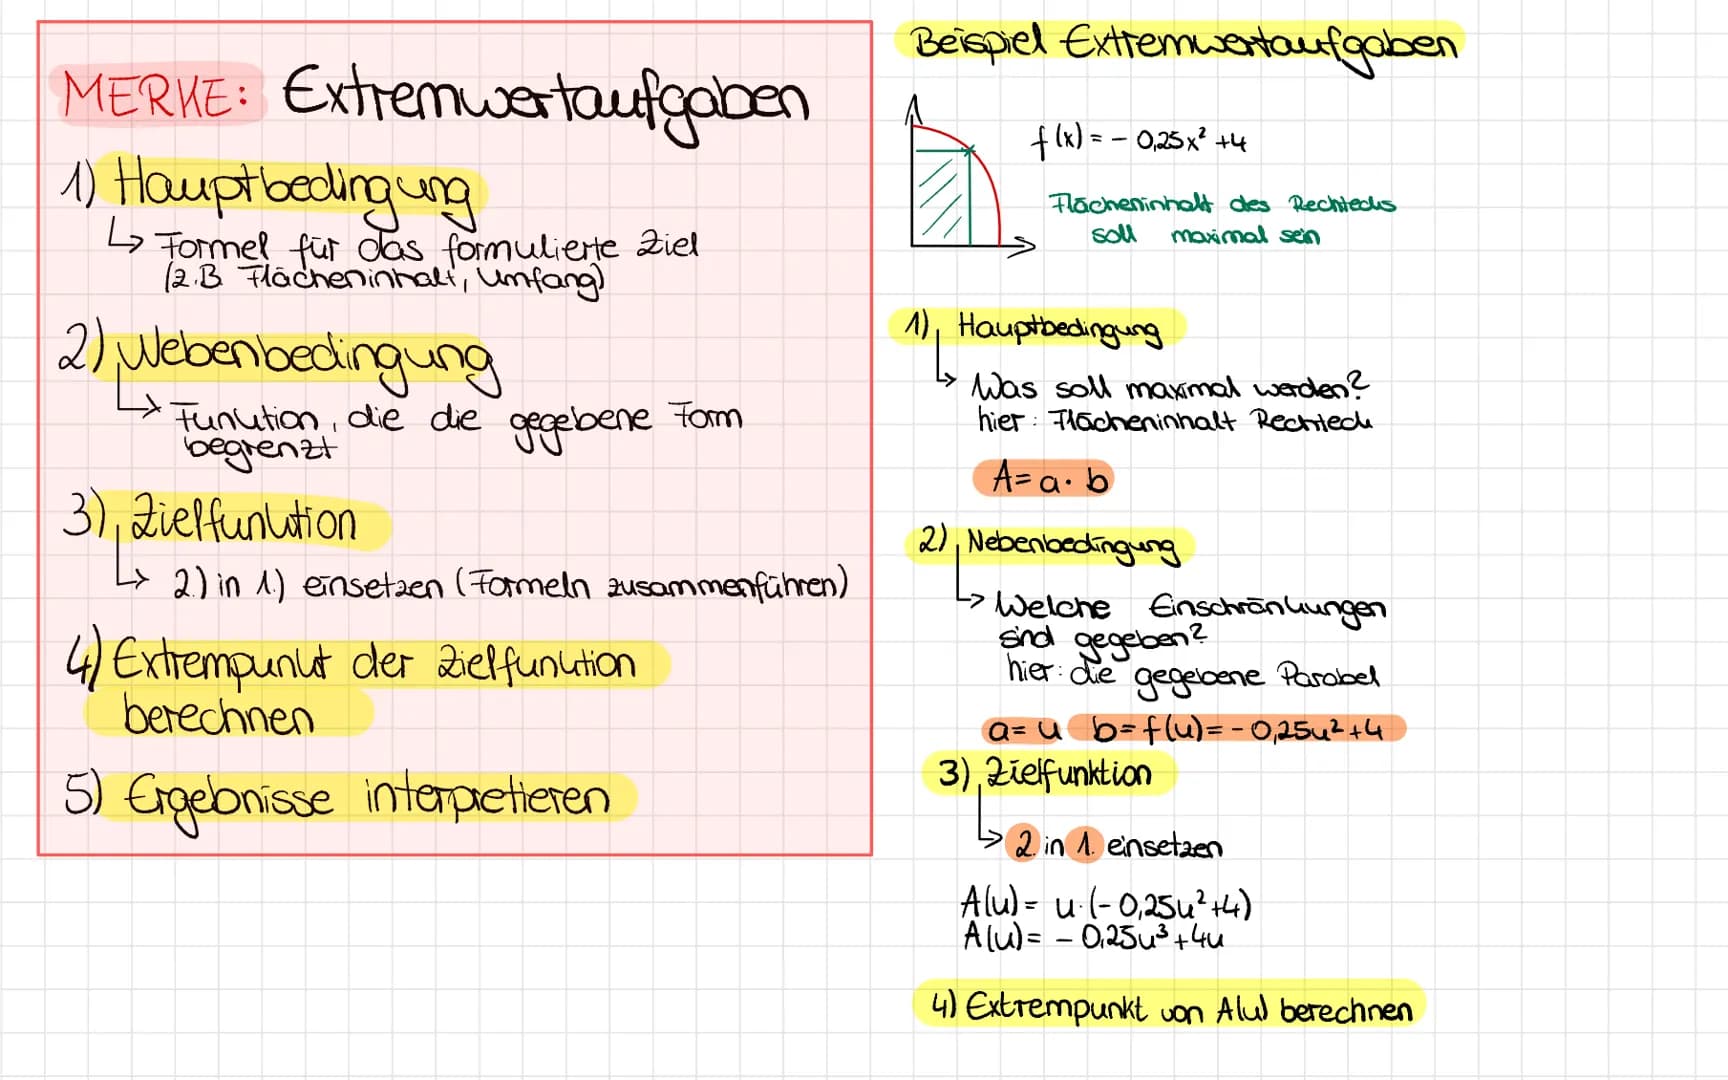 MERKE: Extremwertaufgaben
1) Hauptbedingung
↳ Formel für das formulierte Ziel
(z.B Flächeninhalt, Umfang)
2) Nebenbedingung
↳ Funktion, die die gegebene Form
begrenzt
3) Zielfunktion
↳ 2.) in 1.) einsetzen (Formeln zusammenführen)
4) Extrempunkt der Zielfunktion
berechnen
5) Ergebnisse interpretieren
Beispiel Extremwertaufgaben
f(x) = - 0,25x² +4
Flächeninhalt des Rechtecks
soll maximal sein
1) Hauptbedingung
↳ Was soll maximal werden?
hier: Flächeninhalt Rechteck
A= a · b
2) Nebenbedingung
↳ Welche Einschränkungen
sind gegeben?
hier: die gegebene Parabel
a= u b= f(u)= - 0,25u²+4
3) Zielfunktion
↳ 2. in 1. einsetzen
A(u) = u·(- 0,25u²+4)
A(u) = - 0,25u³+4u
4) Extrempunkt von A(u) berechnen